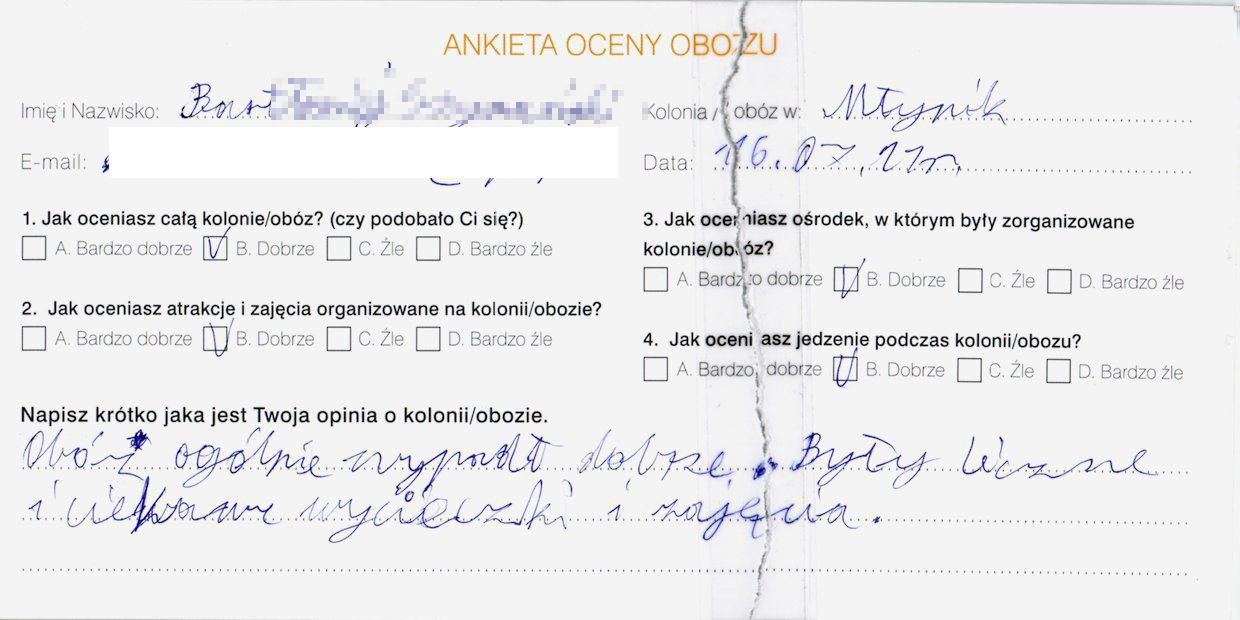 ANKIETA OCENY OBOZU
Imię i Nazwisko:
Kolonia / obóz w: Młynik
E-mail:
Data: 16.07.11r.
1. Jak oceniasz całą kolonie/obóz? (czy podobało Ci się?)
A. Bardzo dobrze V B. Dobrze C. Źle D. Bardzo źle
2. Jak oceniasz atrakcje i zajęcia organizowane na kolonii/obozie?
A. Bardzo dobrze V B. Dobrze C. Źle D. Bardzo źle
3. Jak oceniasz ośrodek, w którym były zorganizowane
kolonie/obóz?
A. Bardzo dobrze V B. Dobrze C. Źle D. Bardzo źle
4. Jak oceniasz jedzenie podczas kolonii/obozu?
A. Bardzo dobrze V B. Dobrze C. Źle D. Bardzo źle
Napisz krótko jaka jest Twoja opinia o kolonii/obozie.
Obóz ogólnie wypadł dobrze. Były liczne
i ciekawe wycieczki i zajęcia.